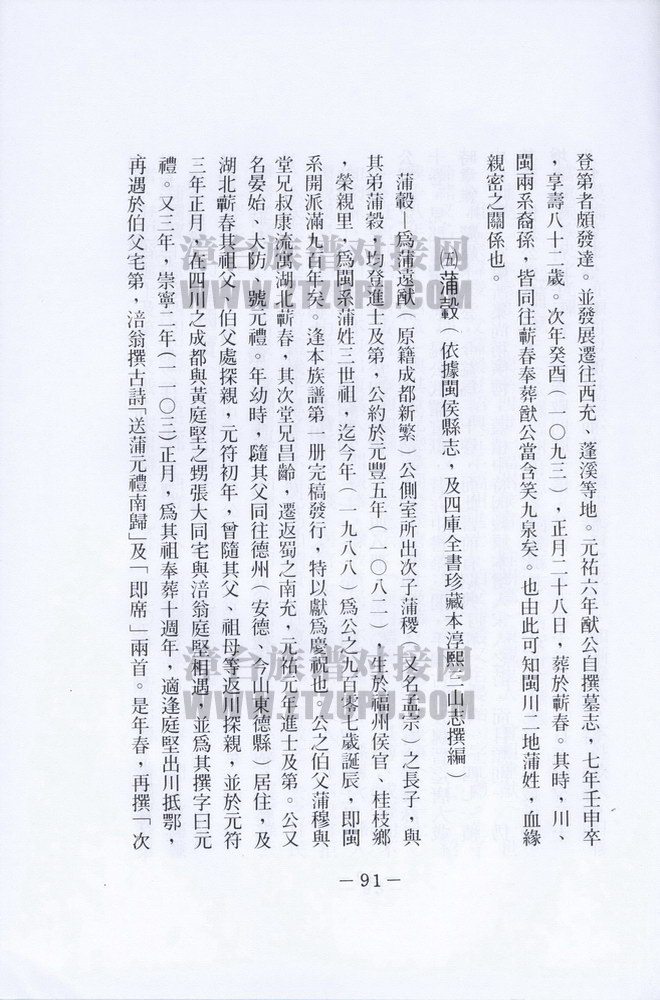 登第者頗發達。並發展遷往西充、蓬溪等地。元祐六年猷公自撰墓志，七年壬申卒
，享壽八十二歲。次年癸酉（一〇九三），正月二十八日，葬於蘄春。其時，川、
閩兩系裔孫，皆同往蘄春奉葬猷公當含笑九泉矣。也由此可知閩川二地蒲姓，血緣
親密之關係也。
㈤蒲轂（依據閩侯縣志，及四庫全書珍藏本淳熙三山志撰編）
蒲轂—為蒲遠猷（原籍成都新繁）公側室所出次子蒲稷（又名孟宗）之長子，與
其弟蒲穀，均登進士及第，公約於元豐五年（一〇八二），生於福州侯官、桂枝鄉
，榮親里，為閩系蒲姓三世祖，迄今年（一九八八）為公之九百零七歲誕辰，即閩
系開派滿九百年矣。逢本族譜第一册完稿發行，特以獻為慶祝也。公之伯父蒲穆與
堂兄叔康流寓湖北蘄春，其次堂兄昌齡，遷返蜀之南充，元祐元年進士及第。公又
名晏始、大防，號元禮。年幼時，隨其父同往德州（安德、今山東德縣）居住，及
湖北蘄春其祖父、伯父處探親，元符初年，曾隨其父、祖母等返川探親，並於元符
三年正月，在四川之成都與黃庭堅之甥張大同宅與涪翁庭堅相遇，並為其撰字曰元
禮。又三年，崇寧二年(一一〇三)正月，為其祖奉葬十週年，適逢庭堅出川抵鄂，
再遇於伯父宅第，涪翁撰古詩「送蒲元禮南歸」及「即席」兩首。是年春，再撰「次
—91—
漳台族谱对接网
WWW.ZTZUPU.COM
漳台族谱对接网
WWW.ZTZUPU.COM